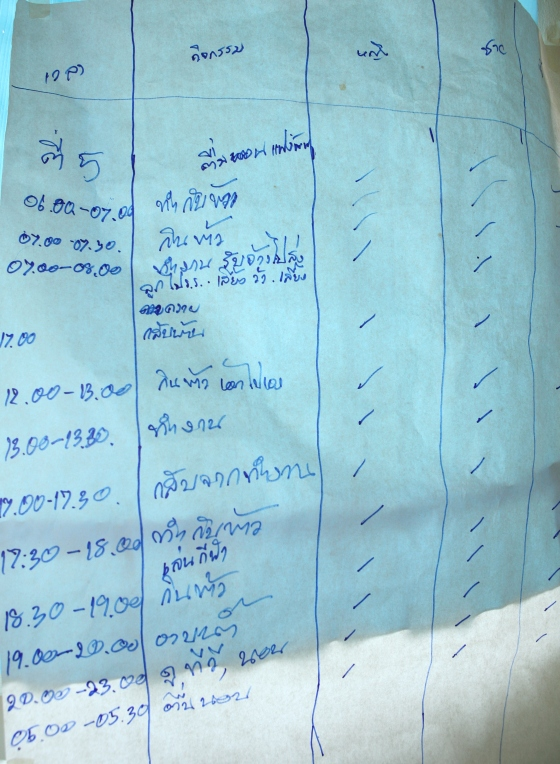 เวลา กิจกรรม หญิง ชาย
ตี 5 ตื่นนอน
06.00-07.00 ทำกับข้าว
07.00-07.30. กินข้าว
07.00-08.00 ทำงาน รับจ้าง ไปส่ง
ลูกไป ร.ร. . เลี้ยง วัว . เลี้ยง
ควาย
17.00 กลับบ้าน
12.00-13.00 กินข้าว
13.00-13.30. ทำงาน
17.00-17.30. กลับจากทำงาน
17:30-18.00 ทำกับข้าว
เล่นกีฬา
18.30-19.00 กินข้าว
19.00-20.00 อาบน้ำ
20.00-23.00 ดูทีวี, นอน
05.00-05.30 ตื่นนอน